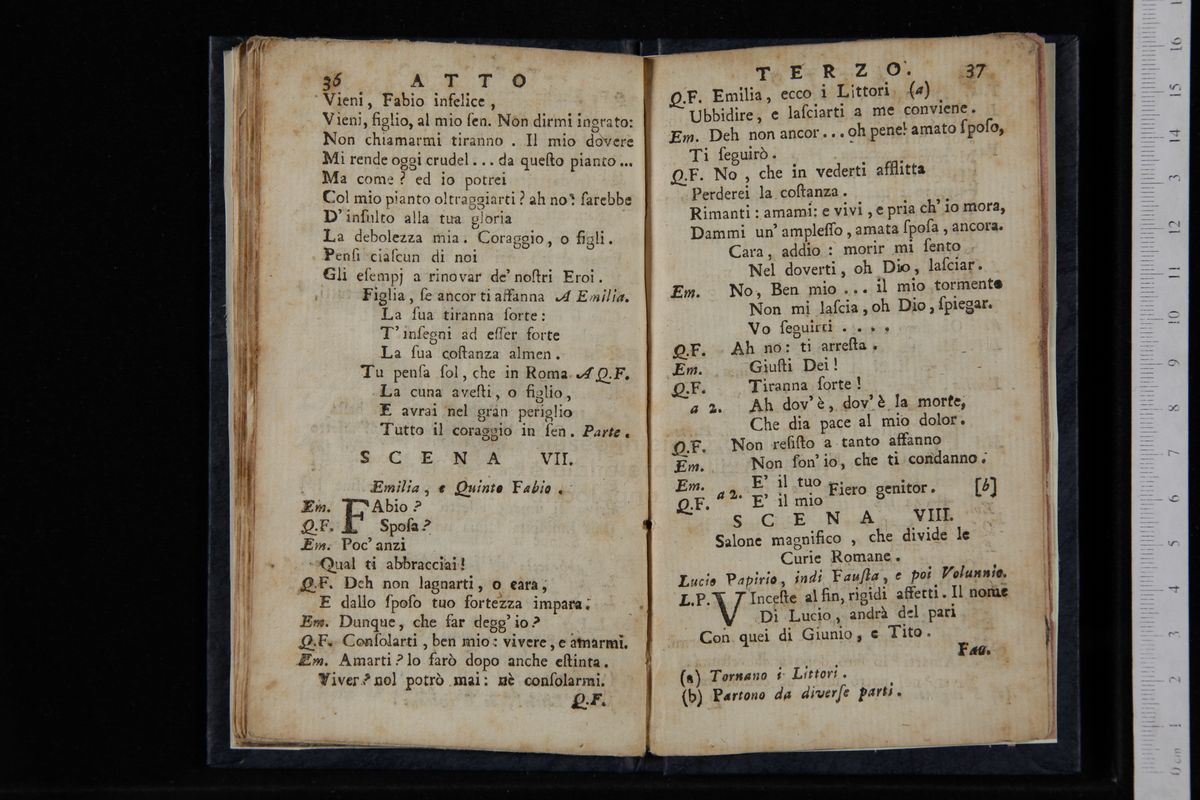 36 ATTO
Vieni, Fabio infelice,
Vieni, figlio, al mio ſen. Non dirmi ingrato:
Non chiamarmi tiranno. Il mio dovere
Mi rende oggi crudel... da queſto pianto...
Ma come? ed io potrei
Col mio pianto oltraggiarti? ah no: ſarebbe
D' inſulto alla tua gloria
La debolezza mia. Coraggio, o figli.
Penſi ciaſcun di noi
Gli eſempj a rinovar de' noſtri Eroi.
Figlia, ſe ancor ti affanna A Emilia.
La ſua tiranna ſorte:
T' inſegni ad eſſer forte
La ſua coſtanza almen.
Tu penſa ſol, che in Roma A Q.F.
La cuna aveſti, o figlio,
E avrai nel gran periglio
Tutto il coraggio in ſen. Parte.
SCENA VII.
Emilia, e Quinto Fabio.
Em. FAbio?
Q.F. Spoſa?
Em. Poc' anzi
Qual ti abbracciai!
Q.F. Deh non lagnarti, o cara;
E dallo ſpoſo tuo fortezza impara.
Em. Dunque, che far degg' io?
Q.F. Conſolarti, ben mio: vivere, e amarmi.
Em. Amarti? lo farò dopo anche eſtinta.
Viver? nol potrò mai: nè conſolarmi.
Q.F.
TERZO. 37
Q.F. Emilia, ecco i Littori (a)
Ubbidire, e laſciarti a me conviene.
Em. Deh non ancor... oh pene! amato ſpoſo,
Ti ſeguirò.
Q.F. No, che in vederti afflitta
Perderei la coſtanza.
Rimanti: amami: e vivi, e pria ch' io mora,
Dammi un' ampleſſo, amata ſpoſa, ancora.
Cara, addio: morir mi ſento
Nel doverti, oh Dio, laſciar.
Em. No, Ben mio... il mio tormento
Non mi laſcia, oh Dio, ſpiegar.
Vo ſeguirti....
Q.F. Ah no: ti arreſta.
Em. Giuſti Dei!
Q.F. Tiranna ſorte!
a 2. Ah dov' è, dov' è la morte,
Che dia pace al mio dolor.
Q.F. Non reſiſto a tanto affanno
Em. Non ſon' io, che ti condanno.
Em. E' il tuo
a 2. Fiero genitor. [b]
Q.F. E' il mio
SCENA VIII.
Salone magnifico, che divide le
Curie Romane.
Lucio Papirio, indi Fauſta, e poi Volunnio.
L.P. VInceſte al fin, rigidi affetti. Il nome
Di Lucio, andrà del pari
Con quei di Giunio, e Tito.
Fau.
(a) Tornano i Littori.
(b) Partono da diverſe parti.
0 cm 1 2 3 4 5 6 7 8 9 10 11 12 13 14 15 16